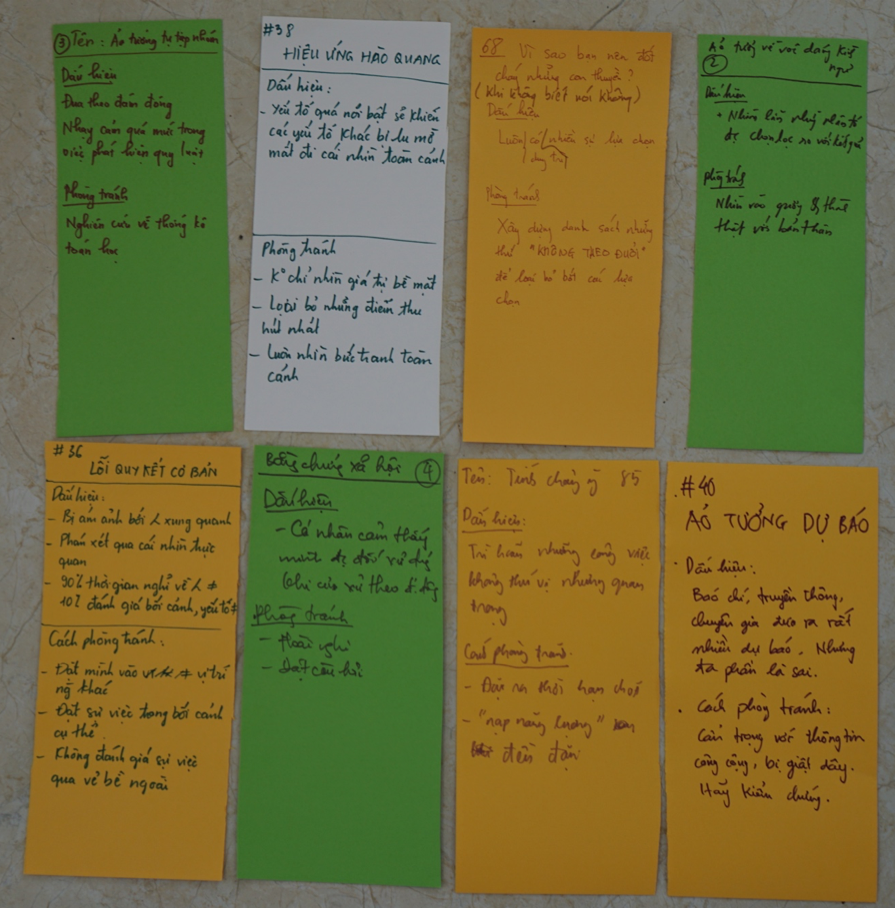 ③ Tên: Ảo tưởng tụ tập nhóm
Dấu hiệu
Đua theo đám đông
Nhạy cảm quá mức trong
việc phát hiện quy luật
Phòng tránh
Nghiên cứu về thống kê
toán học
#38
HIỆU ỨNG HÀO QUANG
Dấu hiệu:
- Yếu tố quá nổi bật sẽ khiến
các yếu tố khác bị lu mờ
mất đi cái nhìn toàn cảnh
Phòng tránh
- K° chỉ nhìn giá trị bề mặt
- Loại bỏ những điểm thu
hút nhất
- Luôn nhìn bức tranh toàn
cảnh
68 Vì sao bạn nên đốt
cháy những con thuyền?
(Khi không biết nói không)
Dấu hiệu
Luôn có nhiều sự lựa chọn
duy trì
Phòng tránh
Xây dựng danh sách những
thứ "KHÔNG THEO ĐUỔI"
để loại bỏ bớt các lựa
chọn
Ảo tưởng về vóc dáng kình
ngư
②
Dấu hiệu
• Nhầm lẫn những nhân tố
để chọn lọc so với kết quả
Phòng tránh
Nhìn vào gương & thành
thật với bản thân
#36
LỖI QUY KẾT CƠ BẢN
Dấu hiệu:
- Bị ám ảnh bởi xung quanh
- Phán xét qua cái nhìn trực
quan
- 90% thời gian nghĩ về ≠
10% đánh giá bối cảnh, yếu tố ≠
Cách phòng tránh:
- Đặt mình vào vị trí
ng` khác
- Đặt sự việc trong bối cảnh
cụ thể
- Không đánh giá sự việc
qua vẻ bề ngoài
Bằng chứng xã hội ④
Dấu hiệu
- Cá nhân cảm thấy
mình đã đối xử đúng
khi cư xử theo đ.đông
Phòng tránh
- Hoài nghi
- Đặt câu hỏi
Tên: Tính chây ỳ 85
Dấu hiệu:
Trì hoãn những công việc
không thú vị nhưng quan
trọng
Cách phòng tránh:
- Đặt ra thời hạn chót
- "nạp năng lượng"
đều đặn
#40
ẢO TƯỞNG DỰ BÁO
• Dấu hiệu:
Báo chí, truyền thông,
chuyên gia đưa ra rất
nhiều dự báo. Nhưng
đa phần là sai.
• Cách phòng tránh:
Cẩn trọng với thông tin
công cộng, bị giật dây.
Hãy kiểm chứng.